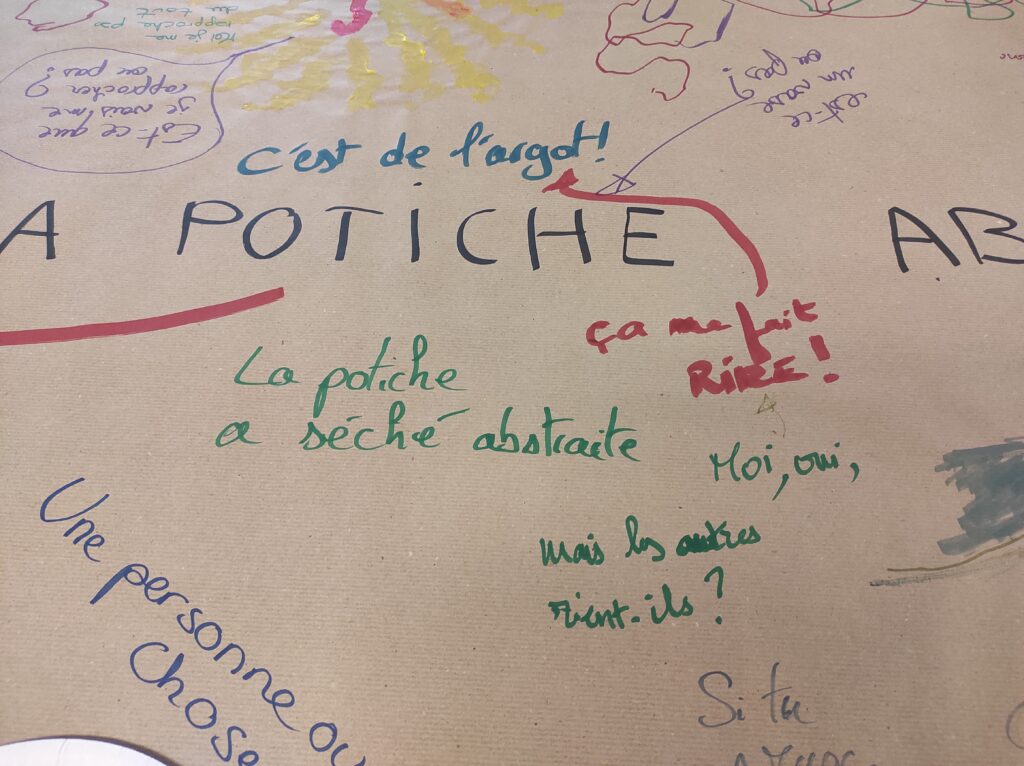 Moi je me
rapproche pas
du tout
Est-ce que
je vais me
rapprocher
ou pas?
est-ce
un vase
ou pas?
c'est de l'argot!
A POTICHE AB
ça me fait
RIRE!
La potiche
a séché abstraite
Moi, oui,
mais les autres
rient-ils?
Une personne ou
chose
Si tu